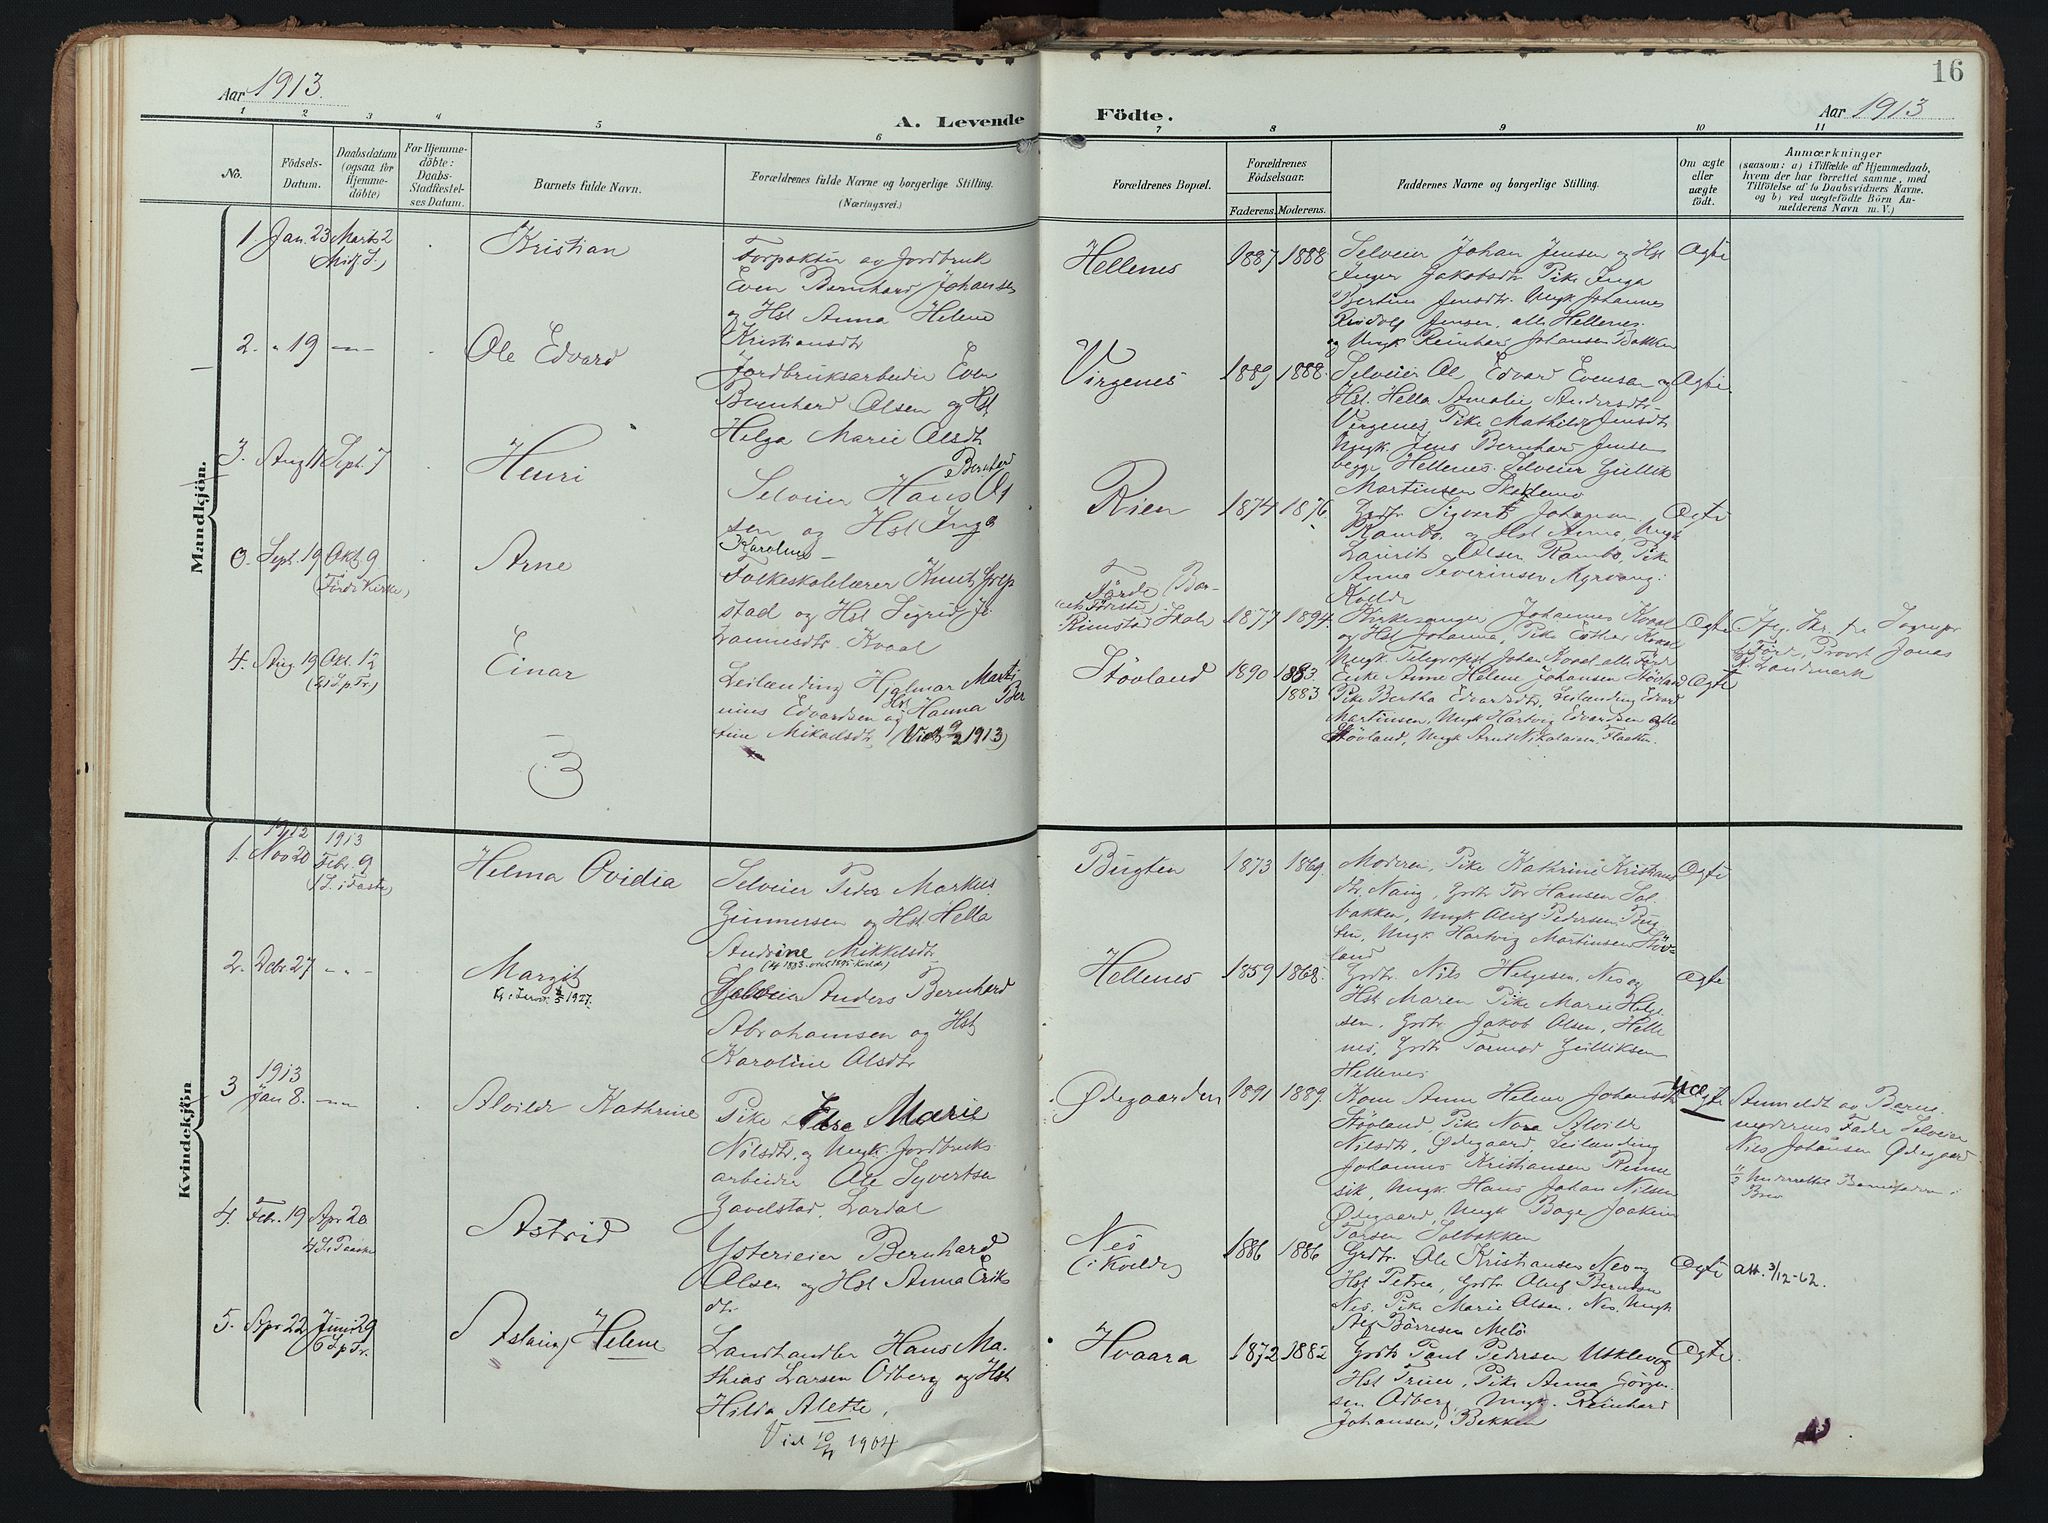 16
Aar 1913.
Aar 1913
A. Levende Födte.
1 2 3 4 5 6 7 8 9 10 11
No.
Födsels-Datum.
Daabsdatum (ogsaa for Hjemmedöbte)
For Hjemmedöbte: Daabs-Stadfæstelses Datum.
Barnets fulde Navn.
Forældrenes fulde Navne og borgerlige Stilling.
(Næringsvei.)
Forældrenes Bopæl.
Forældrenes Födselsaar.
Faderens.
Moderens.
Faddernes Navne og borgerlige Stilling.
Om ægte eller uægte födt.
Anmærkninger
(saasom: a) i Tilfælde af Hjemmedaab,
hvem der har forrettet samme, med
Tilföielse af to Daabsvidners Navne.
og b) ved uægtefödte Börn Anmelderens Navn m. V.)
Mandkjön.
1. Jan. 23 Marts 2
Kristian
Forpakter av Jordbruk
Even Bernhard Johansen
og Hst Anna Helene
Kristiansdtr
Hellenes
1887 1888
Selveier Johan Jensen og Hst
Inger Jakobsdtr Pike Inga
Jensdtr. Ungk Johannes
Jensen, alle Hellenes.
og Ungk Reinhard Johansen Bakken
Ægte
2. " 19 —"—
Ole Edvard
Jordbruksarbeider Even
Bernhard Olsen og Hst
Helga Marie Olsdtr
Virgenes
1889 1888.
Selveier Ole Edvard Evensen og
Hst. Hella Amalie Andersdtr
Virgenes, Pike Mathilde Jensdtr
Ungk. Jens Bernhard Jensen
begge Hellenes. Selveier Gullik
Martinsen
Ægte
3. Aug 11 Sept. 7
Henri
Selveier Hans Bernhard Ol
sen og Hst Inga
Karoline
Rien
1874 1876
Grdbr Sigvart Johansen
Rambo, og Hst Anna, Ungk
Laurits Olsen Rambo, Pike
Anna Severinsen Myrvang
Kvelde
Ægte
0. Sept. 19 Okt 9
(Förde Kirke)
Arne
Folkeskolelærer Knut
stad og Hst Sigrid Jo
hannesdtr. Kvaal
Förde
Rimstad Skole
1877 1894.
Kirkesanger Johannes Kvaal
og Hst Johanna, Pike Esther Kvaal
Ungk. Telegrafist Johan Kvaal alle Förde
Ægte
Förde, Provst Jonas
Landmark
4. Aug 19 Okt. 12
(21 S. p Tr)
Einar
Leilænding Hjalmar Marti
nius Edvardsen og Hst Hanna Ber
tine Mikaelsdtr (Viet 9/2 1913)
Stövland
1890 1883.
1883
Enke Anne Helene Johansen Stövland
Pike Bertha Edvardsdtr, Leilænding Edvard
Martinsen, Ungk Hartvig Edvardsen alle
Stövland, Ungk Arnt Nikolaisen
Ægte
3
Kvindekjön
1912 1913
1. Nov 20 Febr. 9
(1 S. i Faste)
Helma Ovidia
Selveier Peder Markus
Gunnersen og Hst Hella
Andrine Mikkelsdtr
Bugten
1873 1869.
Moderen, Pike Kathrine Kristians
dtr. Grdbr Tor Hansen Sol
bakken, Ungk Oluf Pedersen Bug
ten, Ungk Hartvig Martinsen Stöv
land
Ægte
2. Debr 27 —"—
Margit
1927.
Selveier Anders Bernhard
Abrahamsen og Hst
Karoline Olsdtr
Hellenes
1859 1868.
Grdbr. Nils Helgesen, Nes og
Hst Maren Pike Marie Helge
sen, Grdbr Jakob Olsen, Helle
nes, Grdbr Tormod Gulliksen
Hellenes
Ægte
1913
3 Jan 8. —"—
Alvilde Kathrine
Pike Marie
Nilsdtr, og Ungk. Jordbruks
arbeider Ole Syvertsen
Gavelstad, Lardal
Ødegaarden
1891 1889.
Kone Anne Helene Johansdtr
Stövland Pike Nora Alvilde
Nilsdtr, Ødegaard, Leilænding
Johannes Kristiansen Rinne
sik, Ungk. Hans Johan Nilsen
Ødegaard, Ungk Bage Joakim
Torsen Solbakken
Uægte
Anmeldt av Barne-
moderens Fader Selveier
Nils Johansen Ødegaard
Underrettet Barnefaderen i
Brev
4. Febr. 19 Apr 20
4 S. e Paaske
Astrid
Bernhard
Olsen og Hst Anna Erik
dtr
Nes
i Kvelde
1886 1886
Grdbr. Ole Kristiansen Nes og
Hst Petra, Grdbr Oluf Berntsen
Nes, Pike Marie Olsen, Nes, Ungk
Alf Börresen Melö
Ægte
att. 3/12-62.
5. Apr 22 Juni 29
(6 S p Tr.
Aslaug Helene
Landhandler Hans Ma-
thias Larsen Odberg og Hst
Hilda Alette,
Vid 10/4 1904
Hvaara
1872 1882
Grdbr Paul Pedersen Usklevog
Hst Trine, Pike Anna Jörgen
sen Odberg, Ungk. Reinhard
Johansen, Bekken
Ægte.